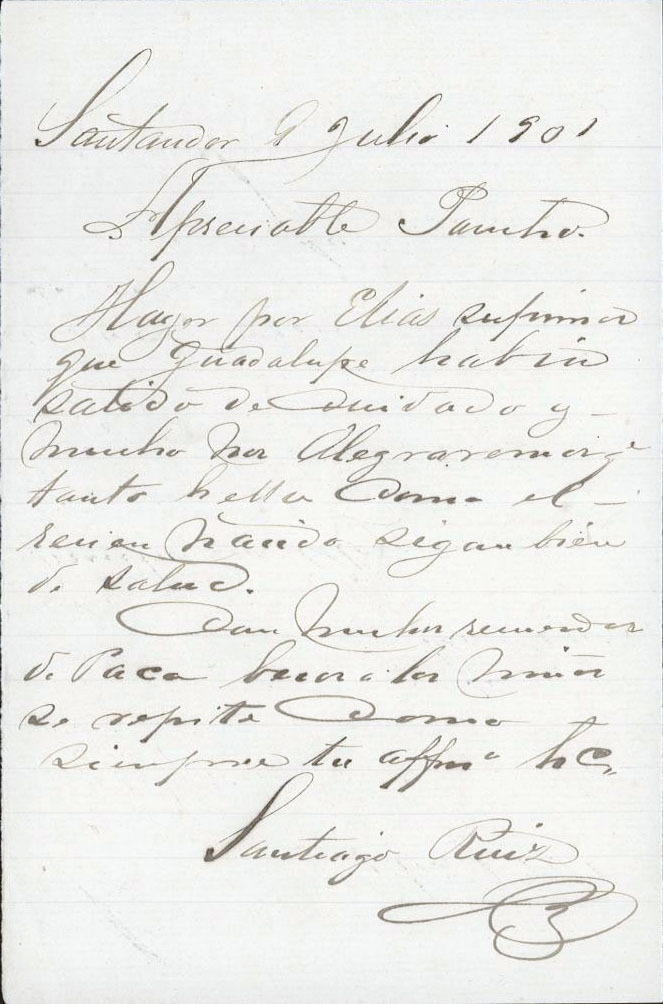 Santander 9 Julio 1901
Apreciable Pancho.
Hayer por Elias supimos
que Guadalupe habia
salido de cuidado y
mucho nos Alegraremos qe
tanto hella Como el
recien Nacido sigan bien
de salud.
Con muchos recuerdos
de Paca besos a los niños
se repite Como
siempre tu affmo
Santiago Ruiz